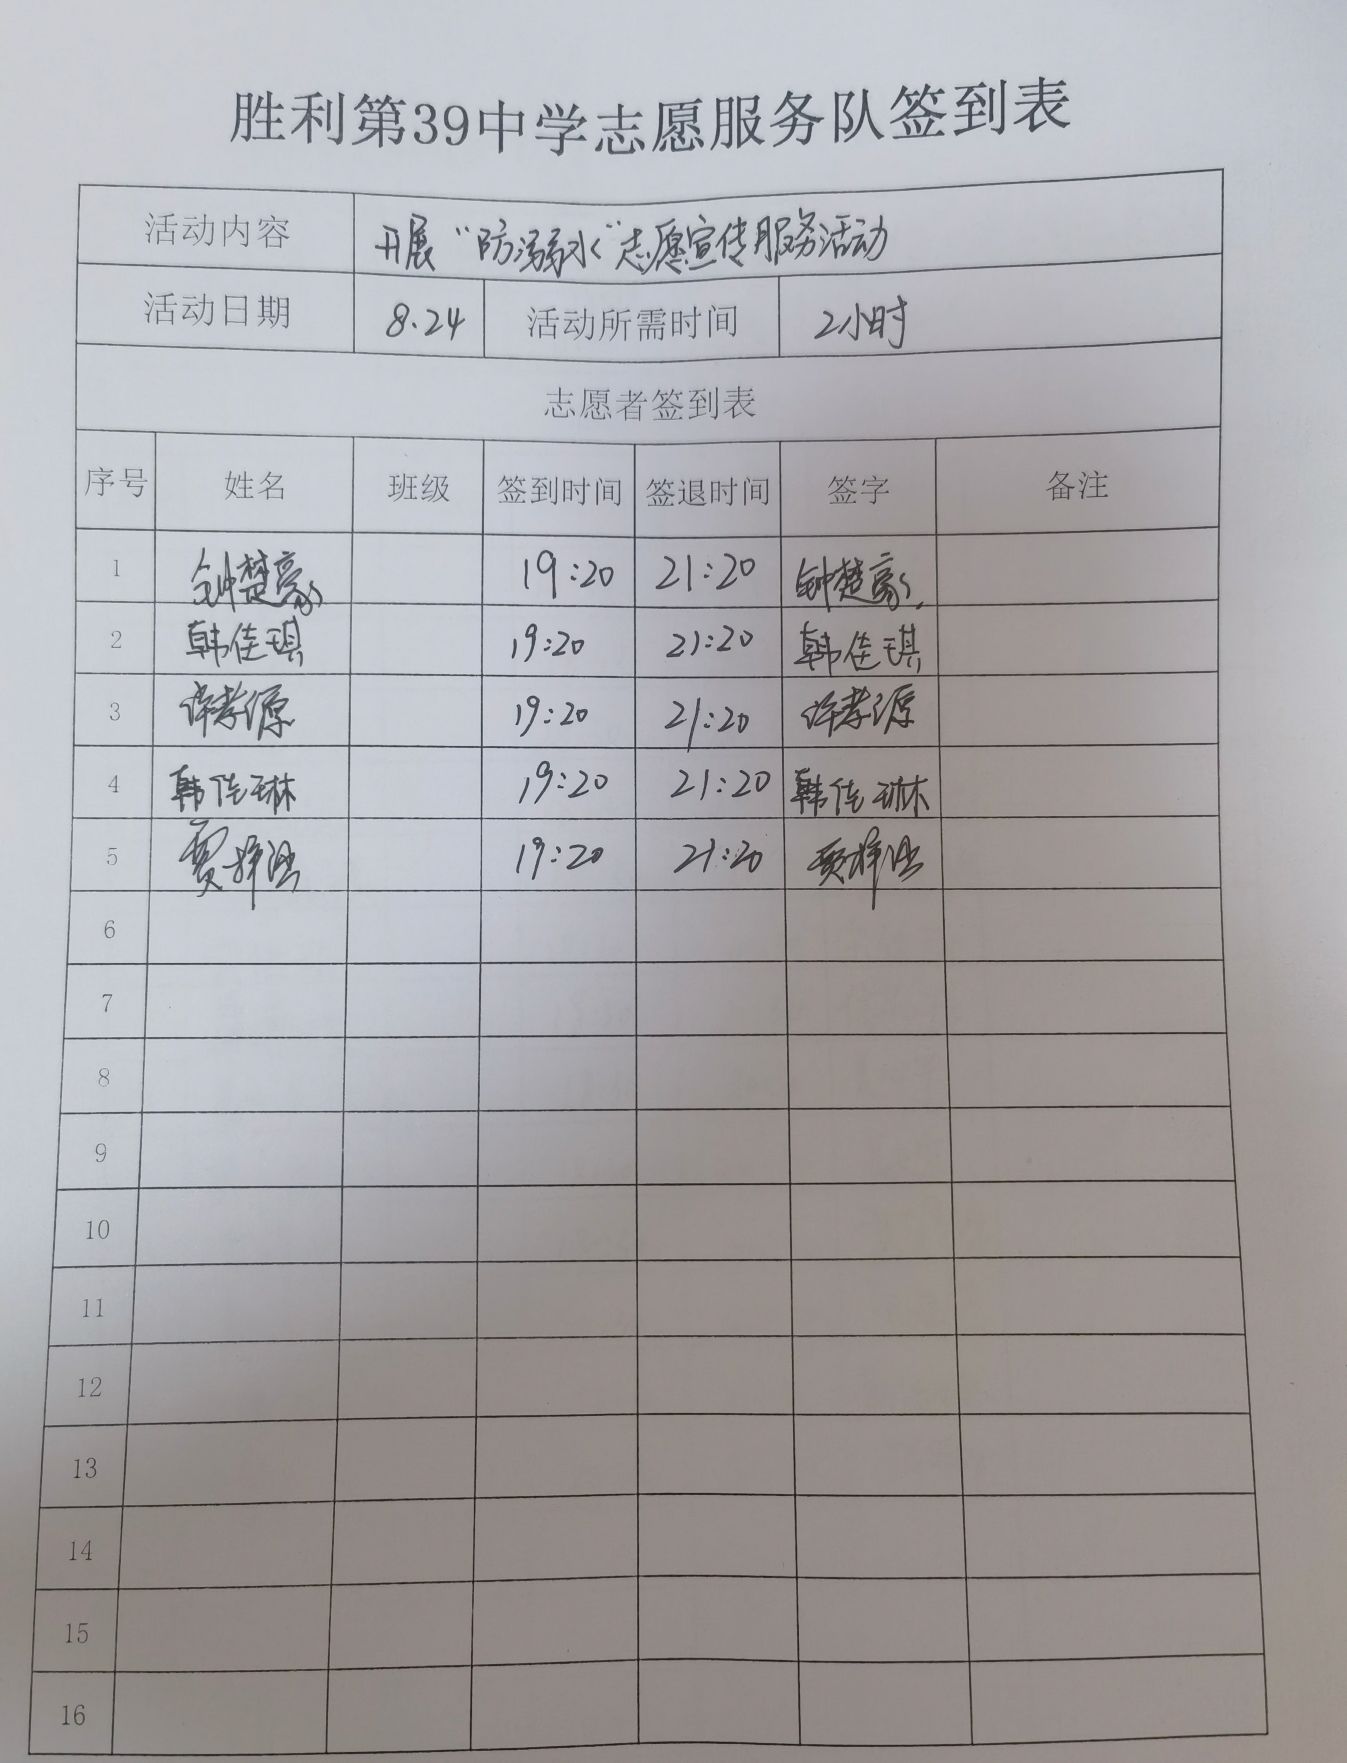 胜利第39中学志愿服务队签到表
活动内容 开展“防溺水”志愿宣传服务活动
活动日期 8.24 活动所需时间 2小时
志愿者签到表
序号 姓名 班级 签到时间 签退时间 签字 备注
1 钟楚豪 19:20 21:20 钟楚豪
2 韩佳琪 19:20 21:20 韩佳琪
3 许孝源 19:20 21:20 许孝源
4 韩佳琳 19:20 21:20 韩佳琳
5 19:20 21:20
6
7
8
9
10
11
12
13
14
15
16